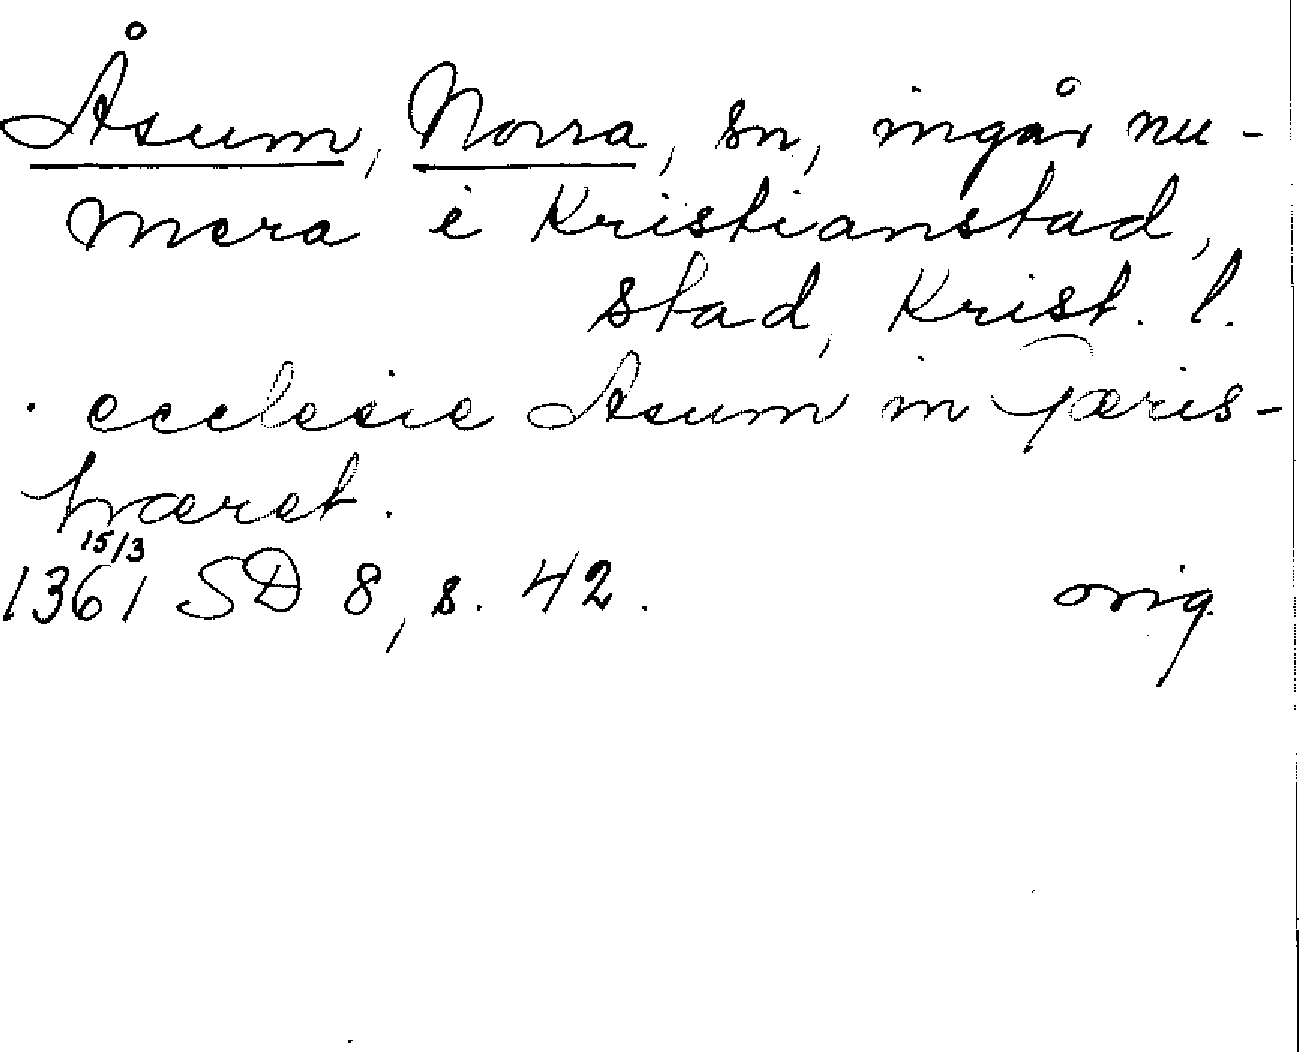 Åsum, Norra, sn, ingår nu-
mera i Kristianstad,
stad, Krist. l.
. ecclesie Asum in Gæris-
hæret.
15/3
1361 SD 8, s. 42. orig.